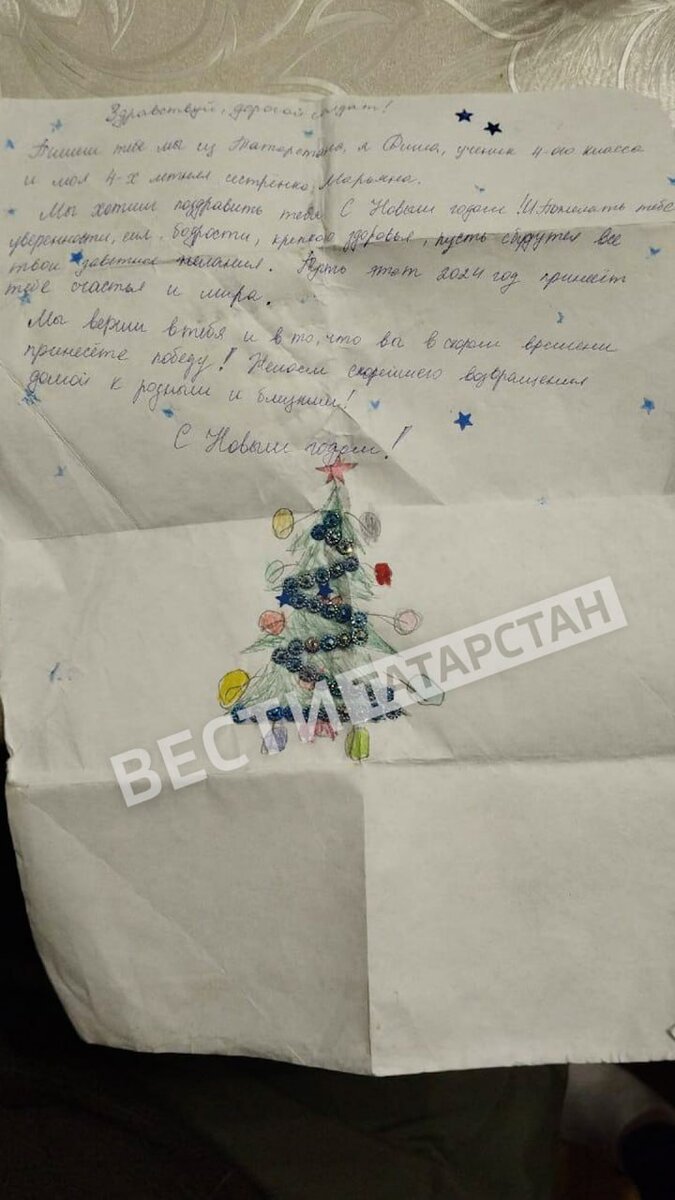 Здравствуй, дорогой солдат!
Пишем тебе мы из Татарстана, я Дима, ученик 4-ого класса
и моя 4-х летняя сестрёнка, Марьяна.
Мы хотим поздравить тебя С Новым годом! И Пожелать тебе
уверенности, сил, бодрости, крепкого здоровья, пусть сбудутся все
твои заветные желания. Пусть этот 2024 год принесёт
тебе счастья и мира.
Мы верим в тебя и в то, что вы в скором времени
принесёте победу! скорейшего возвращения
домой к родным и близким!
С Новым годом!
ВЕСТИ ТАТАРСТАН